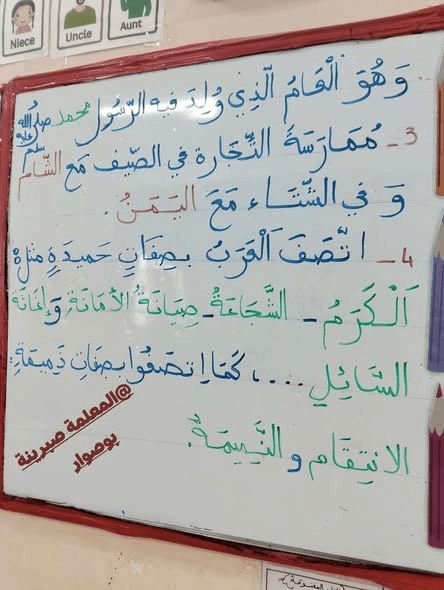 Niece
Uncle
Aunt
وَهُوَ الْعَامُ الَّذِي وُلِدَ فيه الرَّسُول محمد صلى الله عليه وسلم
3 - مُمَارَسَةَ التِّجَارة في الصَّيف مَع الشَّام
وَ في الشِّتَاء مَعَ اليَمَنُ.
4 - اتّصَفَ الْعَرَبُ بِصِفَاتٍ حَمِيدَةٍ مثل
اَلْكَرَمُ - الشَّجَاعَةُ - صِيَانَةُ الأَمَانَةِ وَإِغَاثَة
السَّائِلِ ...، كَمَا اِتصَفُوا بصِفَاتٍ ذَمِيمَةٍ:
الانتِقَام و النَّمِيمَةُ.
@المعلمة صبرينة
بوصوار